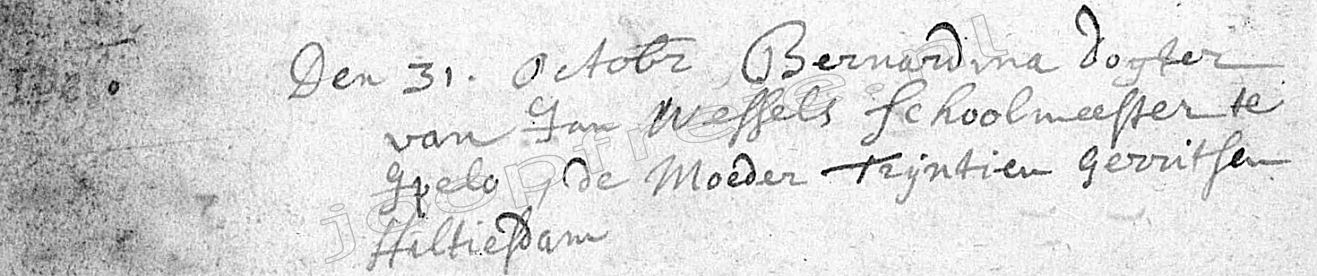 Den 31. Octobr Bernardina dogter
van Jan Wessels Schoolmeester te
Ypelo, de Moeder Trijntien Gerritsen
Hiltiesdam